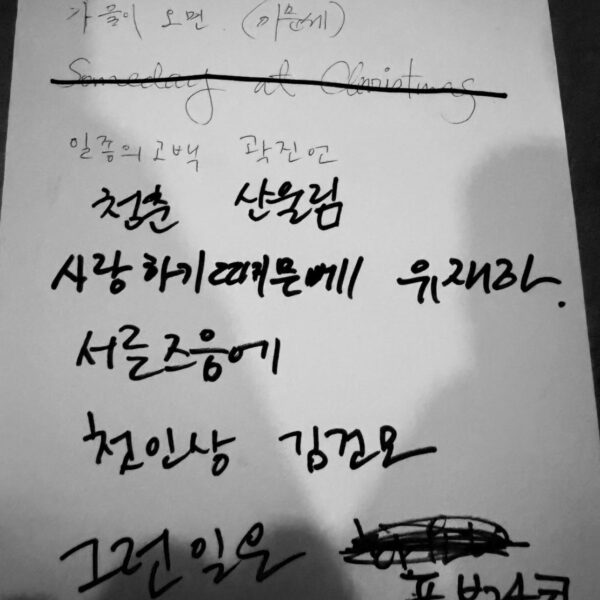 가을이 오면. (이문세)
Someday at Christmas
일종의 고백 곽진언
청춘 산울림
사랑하기때문에 유재하.
서른즈음에
첫인상 김건모
그런일은